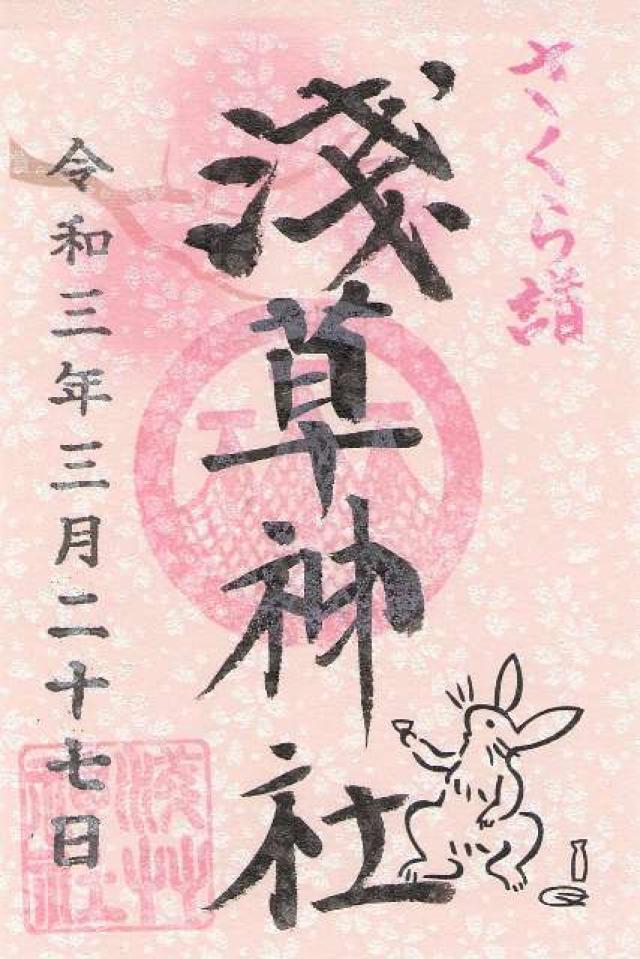 さくら詣
淺草神社
令和三年三月二十七日
淺艸
神社